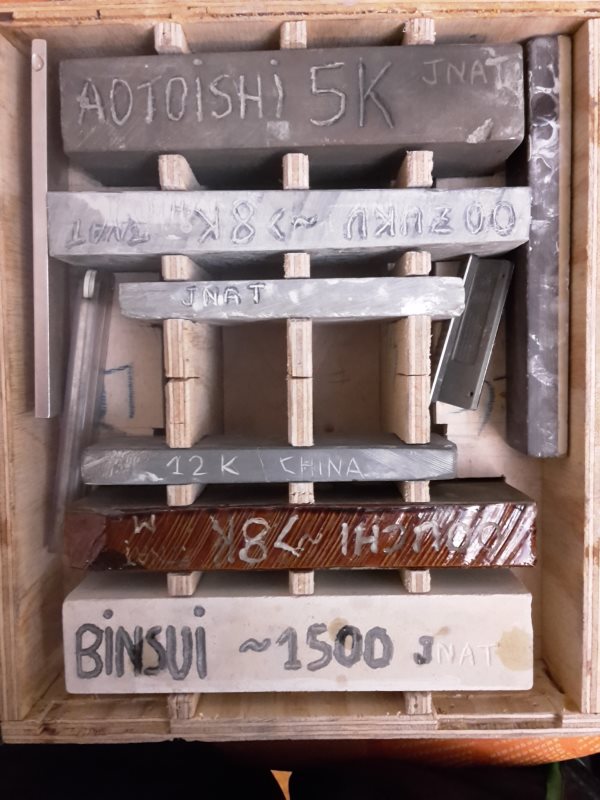 AOTOiSHi 5K JNAT
OOZUKU ~>8K JNAT
JNAT
12K CHINA
OOUCHI ~>8K JNAT
BiNSUi ~1500 JNAT